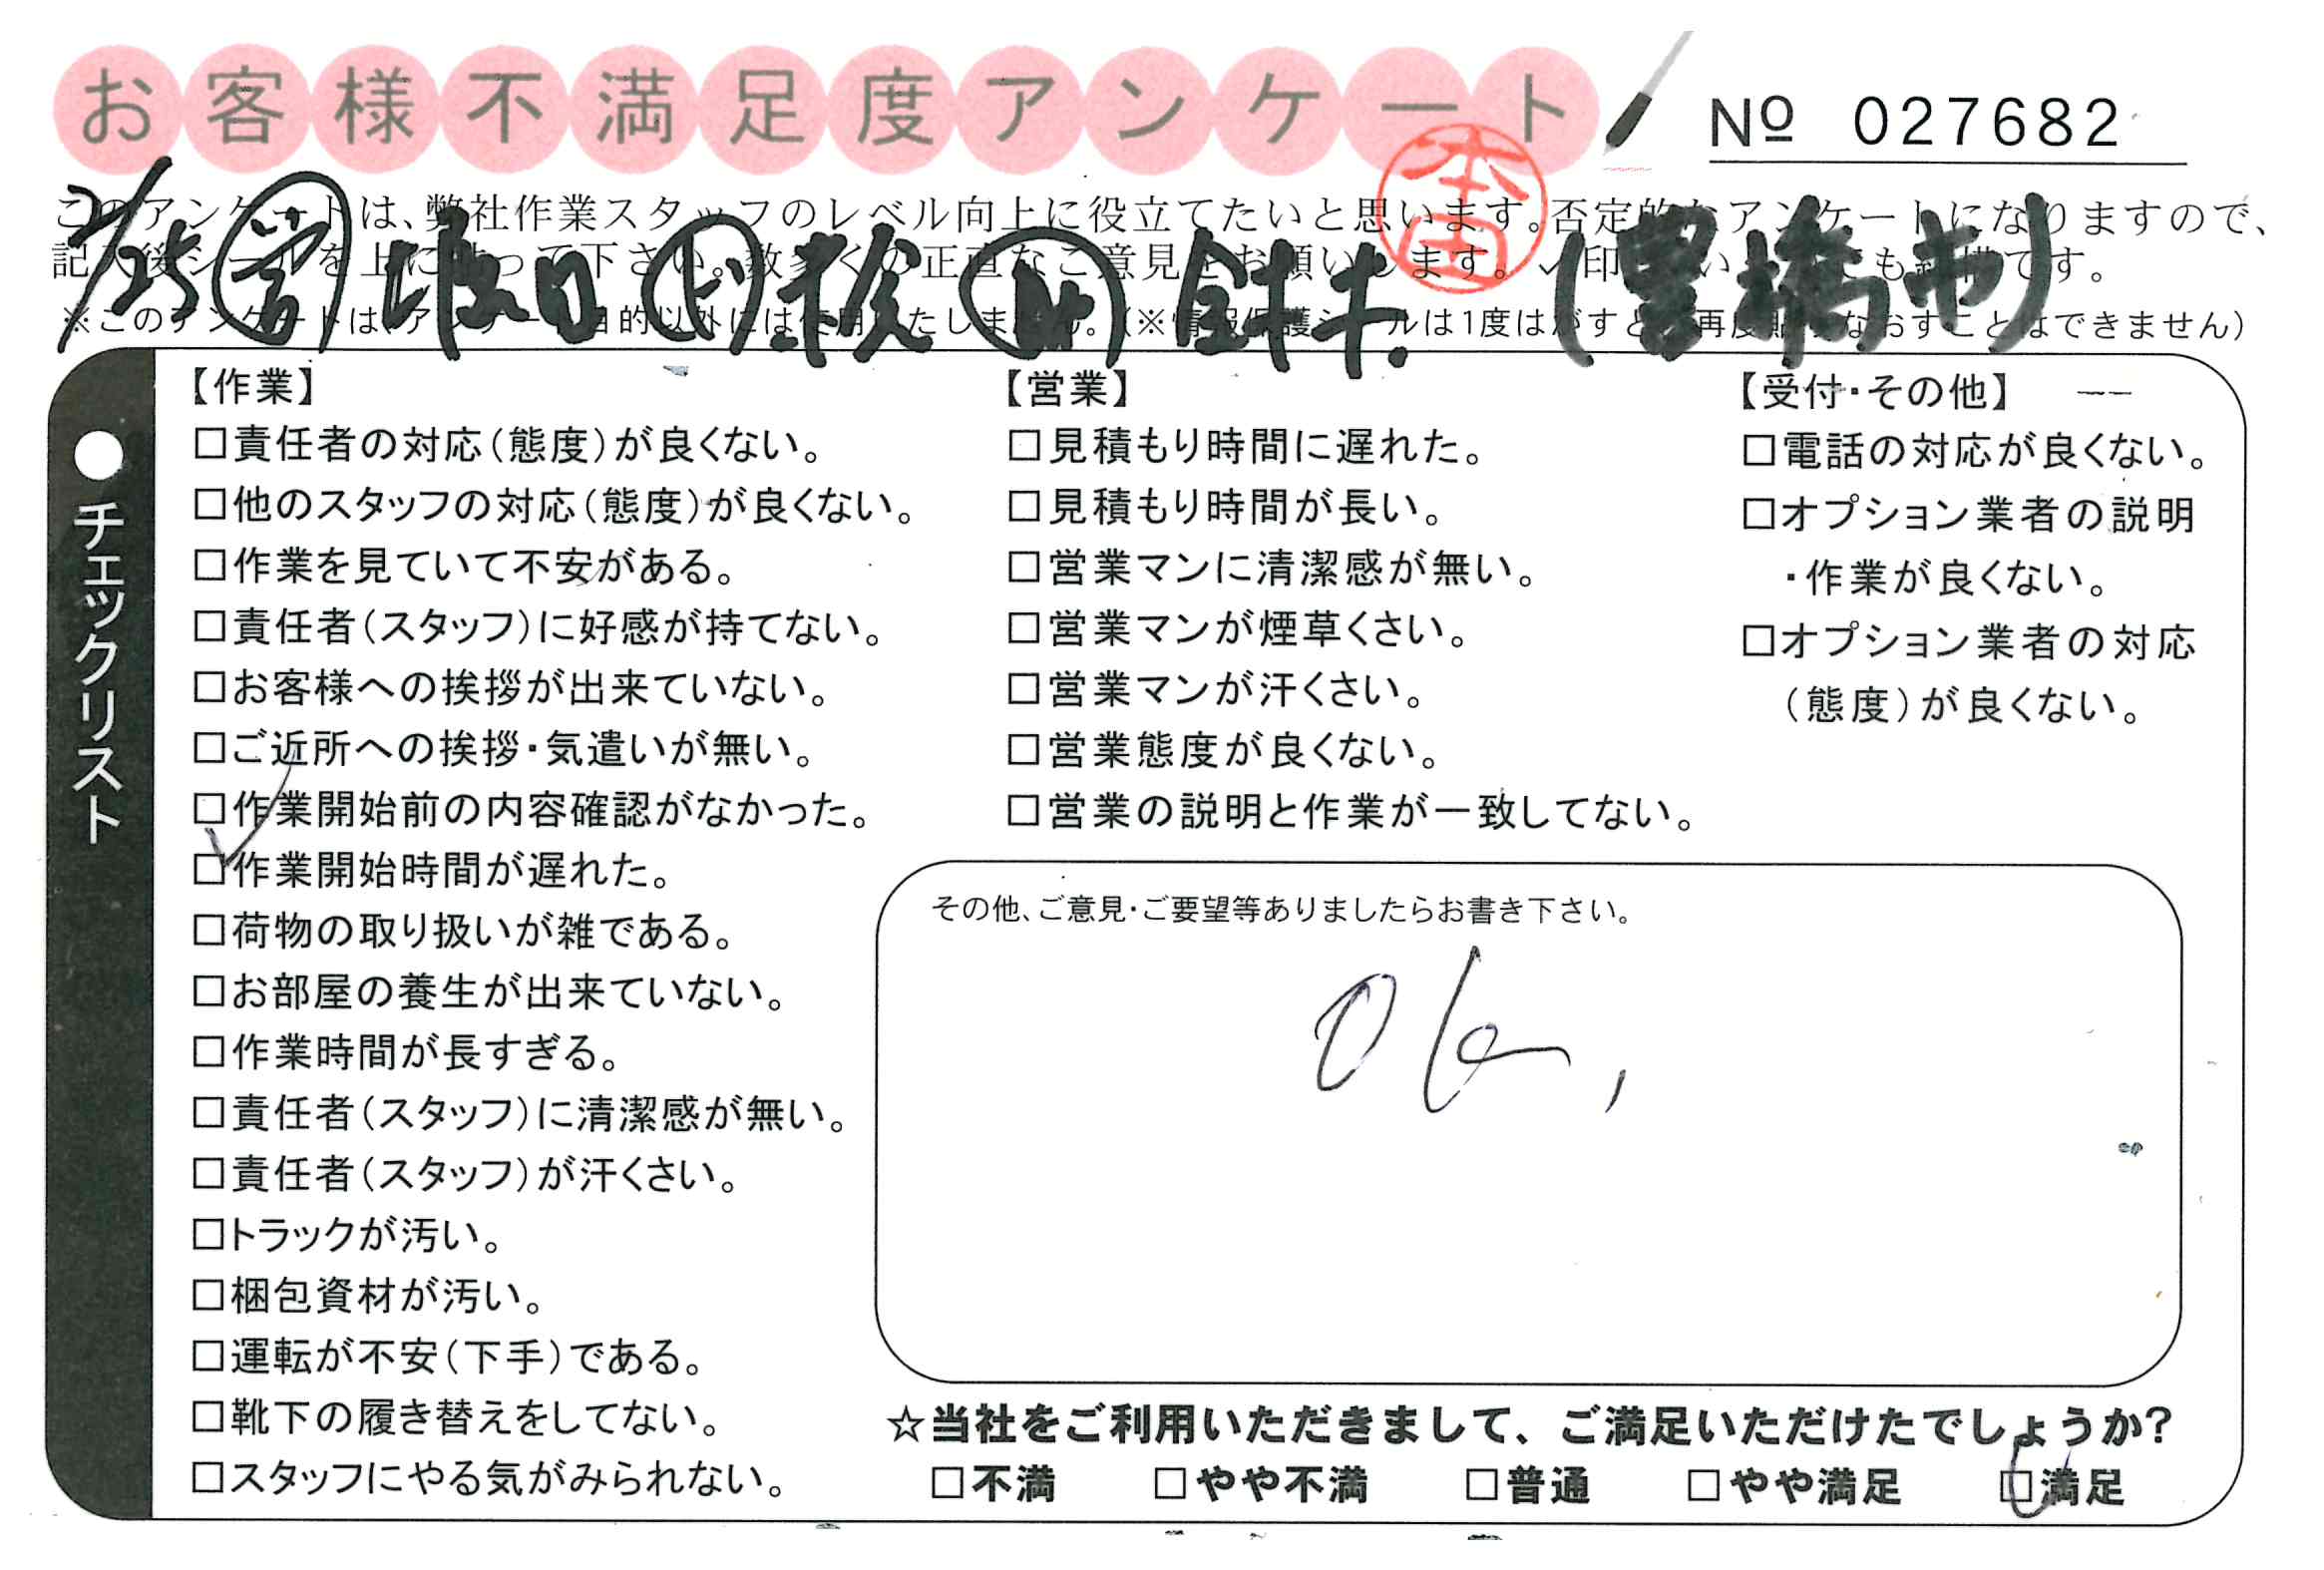 お客様不満足度アンケート
№ 027682
このアンケートは、弊社作業スタッフのレベル向上に役立てたいと思います。否定的なアンケートになりますので、
記入後シールを上にはって下さい。数多くの正直なご意見をお願いします。✓印
も結構です。
本田
2/25 営 堀田 鈴木 (豊橋市)
※このアンケートは、アンケート目的以外には使用いたしません。(※情報保護シールは1度はがすと再度貼りなおすことはできません)
●チェックリスト
【作業】
□責任者の対応(態度)が良くない。
□他のスタッフの対応(態度)が良くない。
□作業を見ていて不安がある。
□責任者(スタッフ)に好感が持てない。
□お客様への挨拶が出来ていない。
□ご近所への挨拶・気遣いが無い。
□作業開始前の内容確認がなかった。
☑作業開始時間が遅れた。
□荷物の取り扱いが雑である。
□お部屋の養生が出来ていない。
□作業時間が長すぎる。
□責任者(スタッフ)に清潔感が無い。
□責任者(スタッフ)が汗くさい。
□トラックが汚い。
□梱包資材が汚い。
□運転が不安(下手)である。
□靴下の履き替えをしてない。
□スタッフにやる気がみられない。
【営業】
□見積もり時間に遅れた。
□見積もり時間が長い。
□営業マンに清潔感が無い。
□営業マンが煙草くさい。
□営業マンが汗くさい。
□営業態度が良くない。
□営業の説明と作業が一致してない。
【受付・その他】
□電話の対応が良くない。
□オプション業者の説明
・作業が良くない。
□オプション業者の対応
(態度)が良くない。
その他、ご意見・ご要望等ありましたらお書き下さい。
Ok,
☆当社をご利用いただきまして、ご満足いただけたでしょうか?
□不満 □やや不満 □普通 □やや満足 ☑満足